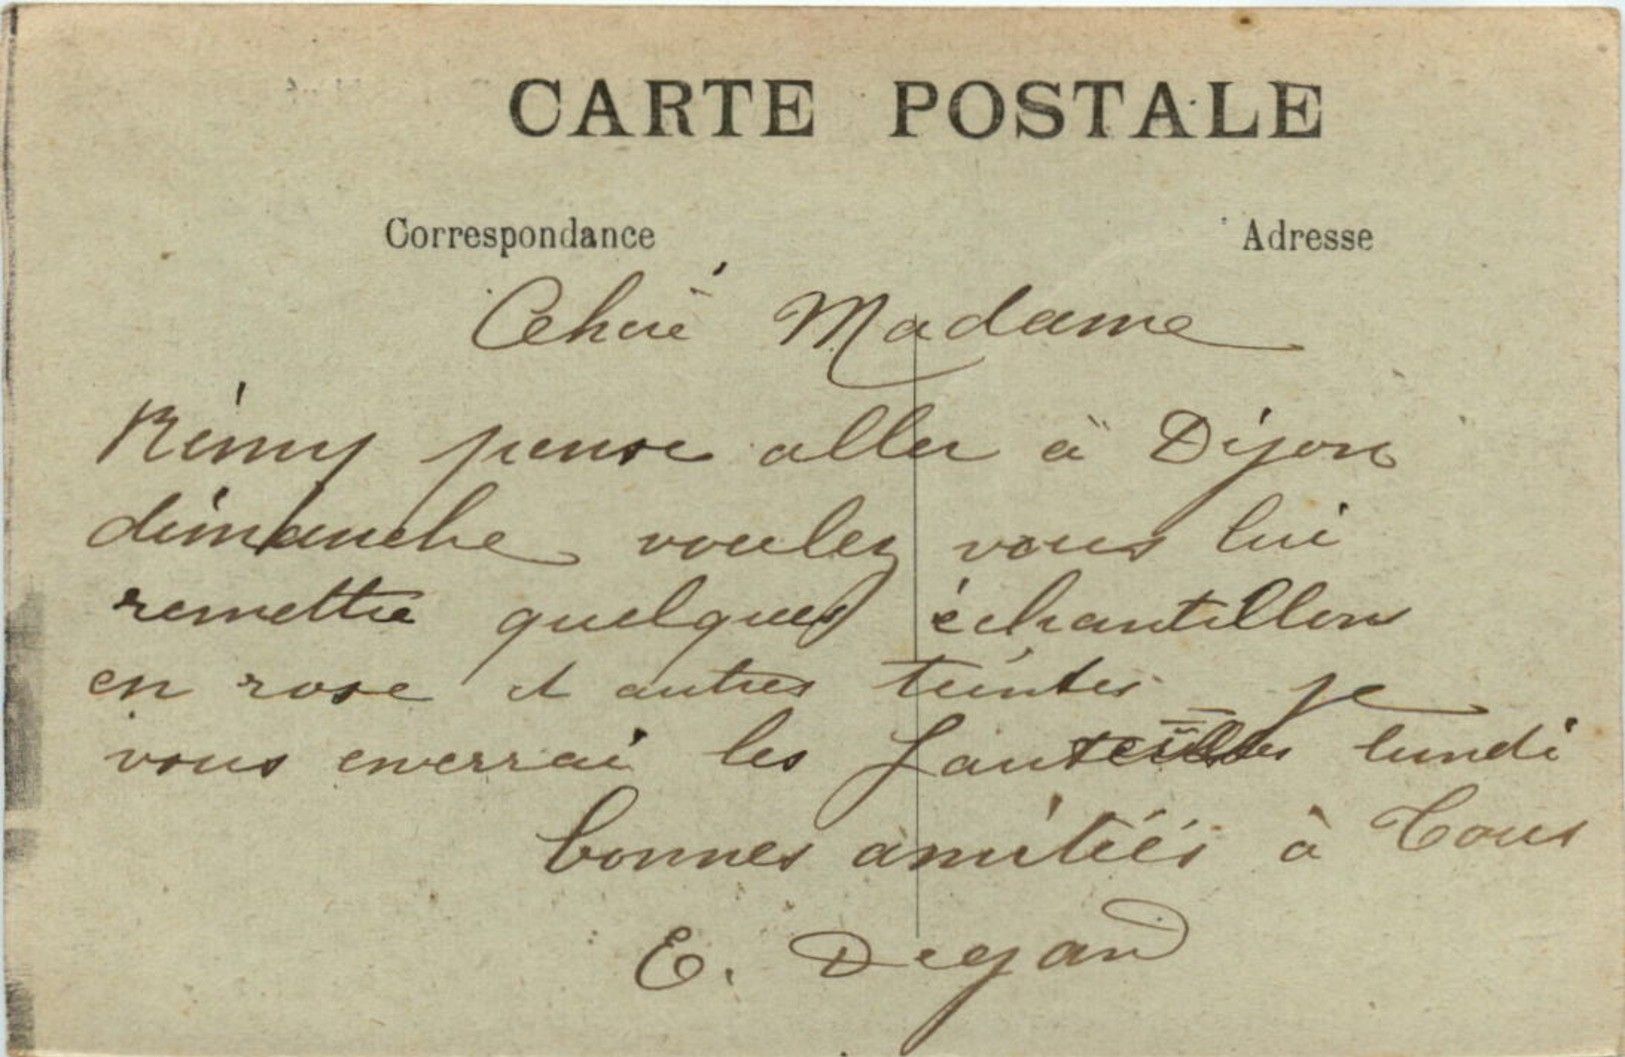 CARTE POSTALE
Correspondance
Adresse
Madame
Rémy pense aller à Dijon
dimanche voulez vous lui
remettre quelques échantillons
en rose et autres teintes je
vous enverrai les lundi
bonnes amitiés à Tous
E.